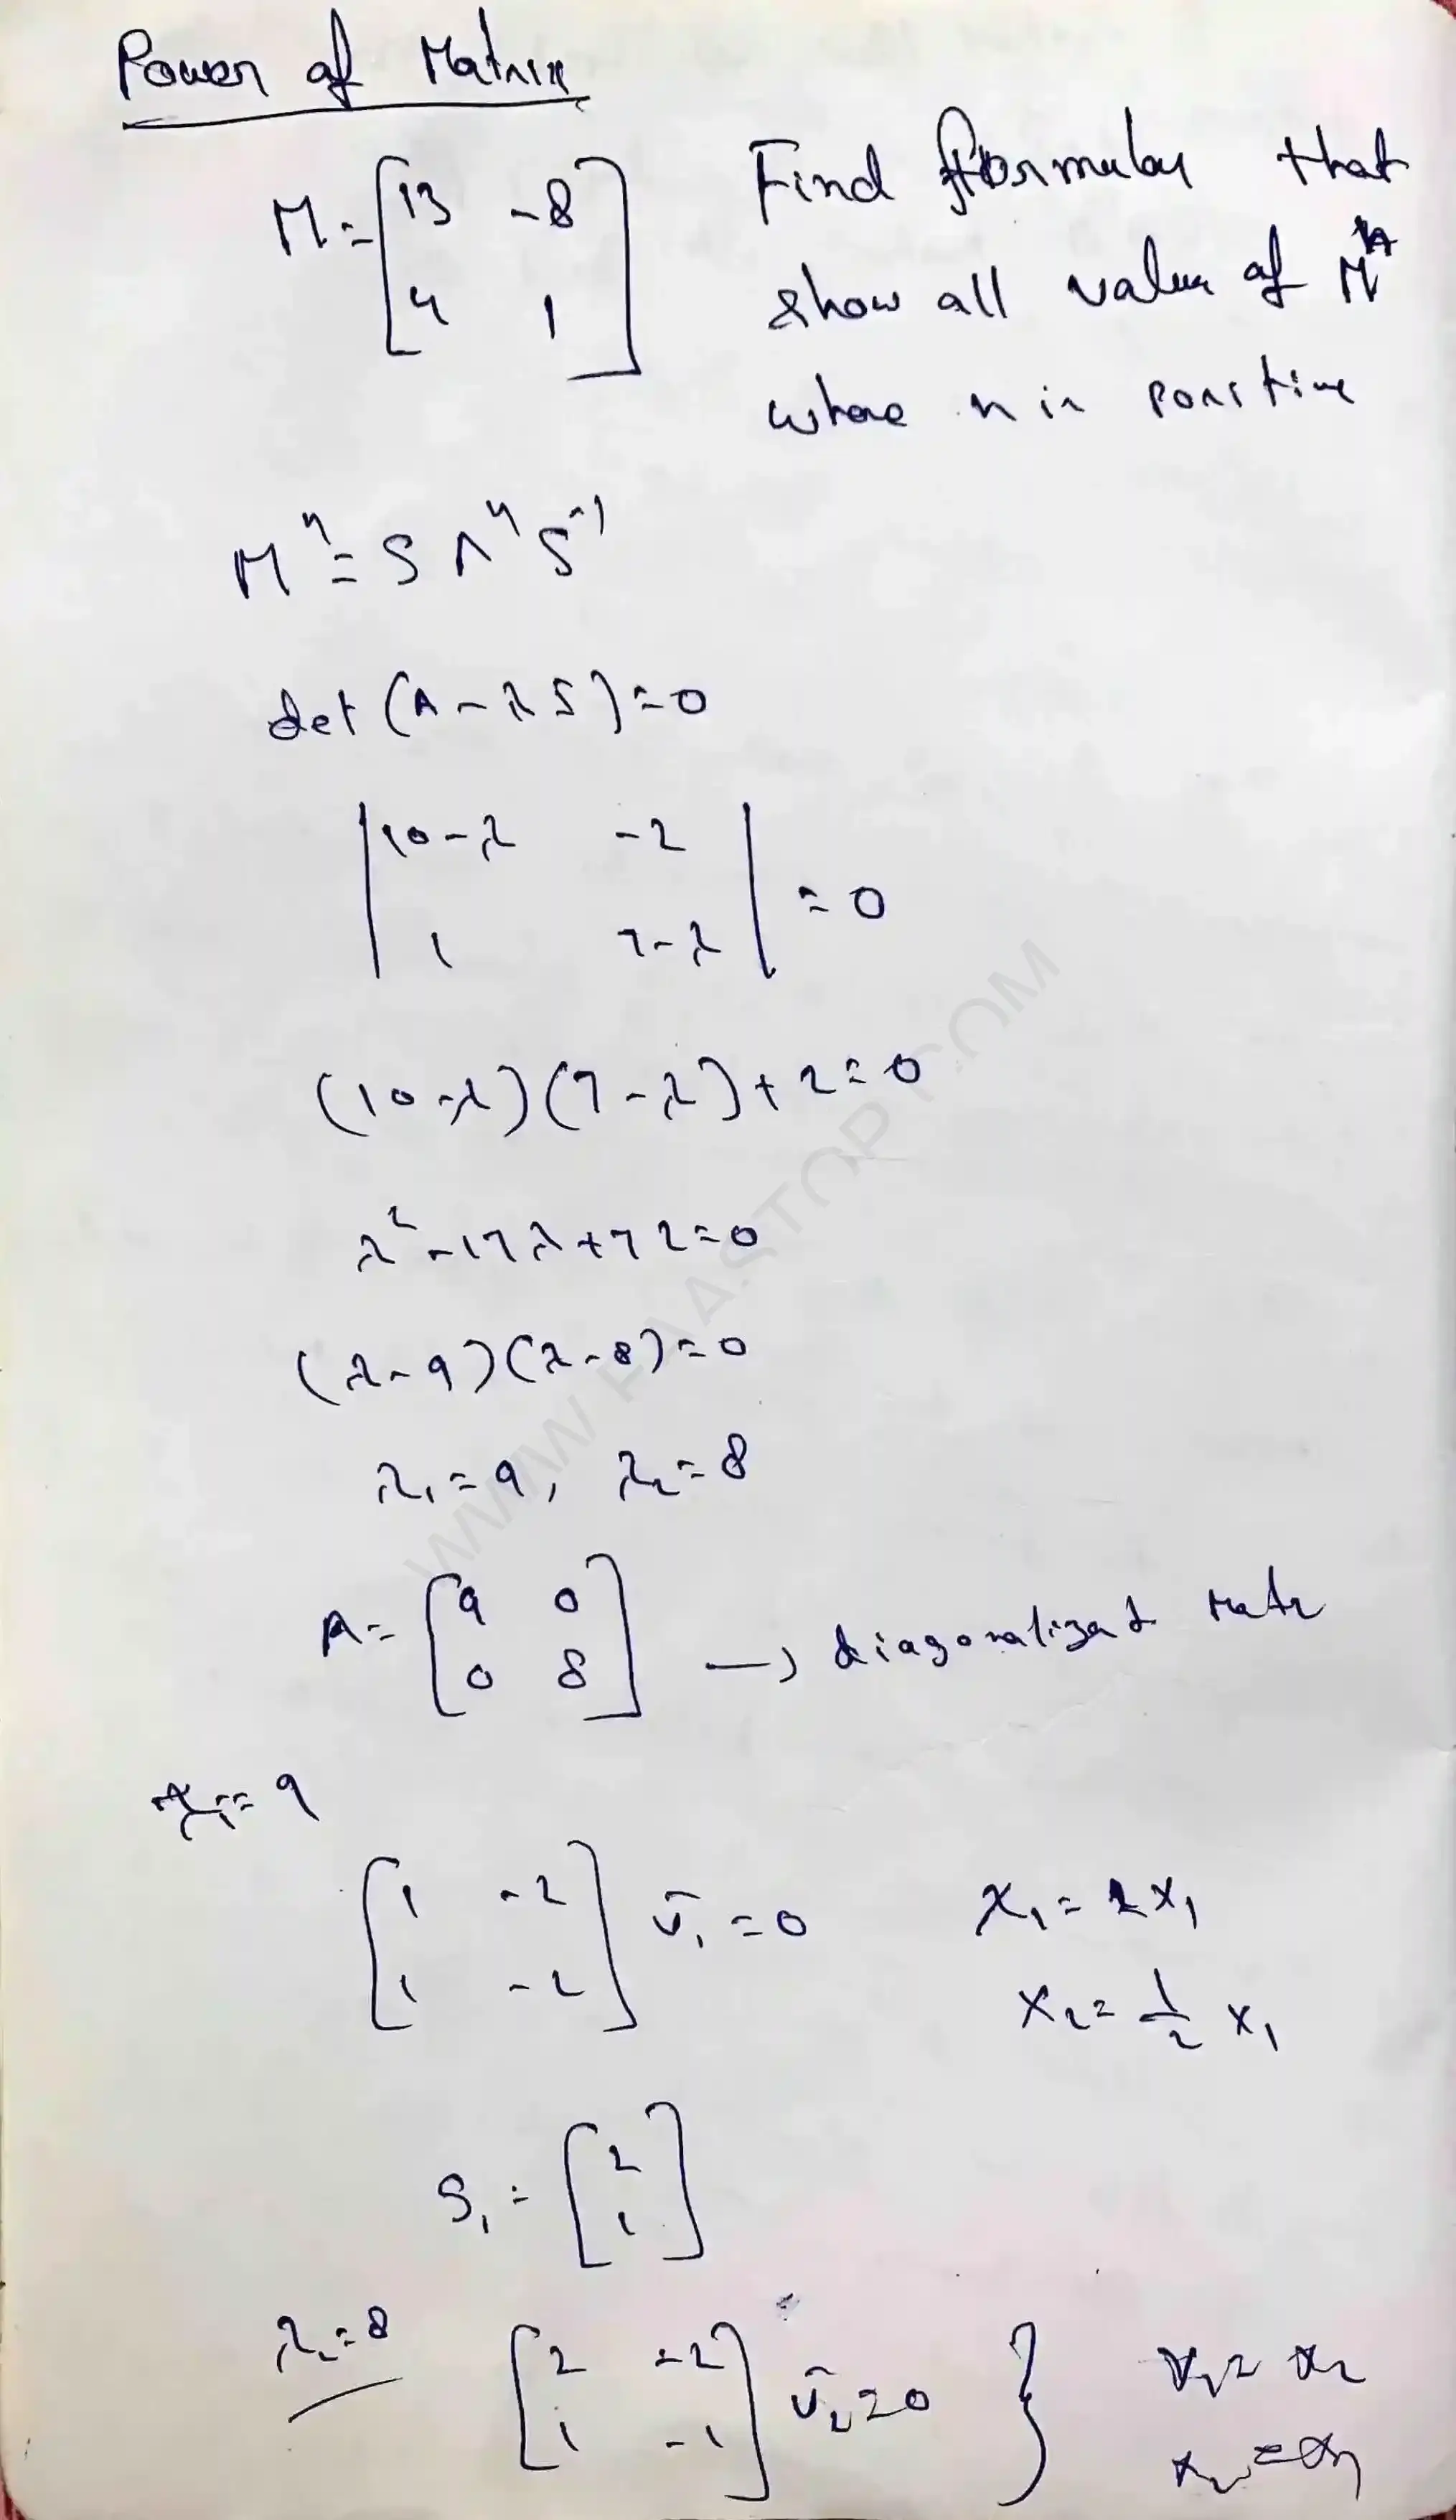 Power of Matrix
M = [13 -8
4 1]
Find formular that
show all value of M^n
where n is positive
M^n = S Λ^n S^-1
det (A - λI) = 0
|10-λ -2
1 7-λ| = 0
(10-λ)(7-λ)+2=0
λ²-17λ+72=0
(λ-9)(λ-8)=0
λ₁=9, λ₂=8
A= [9 0
0 8] → diagonalized
λ₁=9
[1 -2
1 -2] v̄₁=0
x₁=2x₁
x₂=1/2 x₁
S₁ = [2
1]
λ₂=8
[2 -2
1 -1] v̄₂=0 }
x₁=x₂
x₂=x₁
WWW.FAASTOP.COM